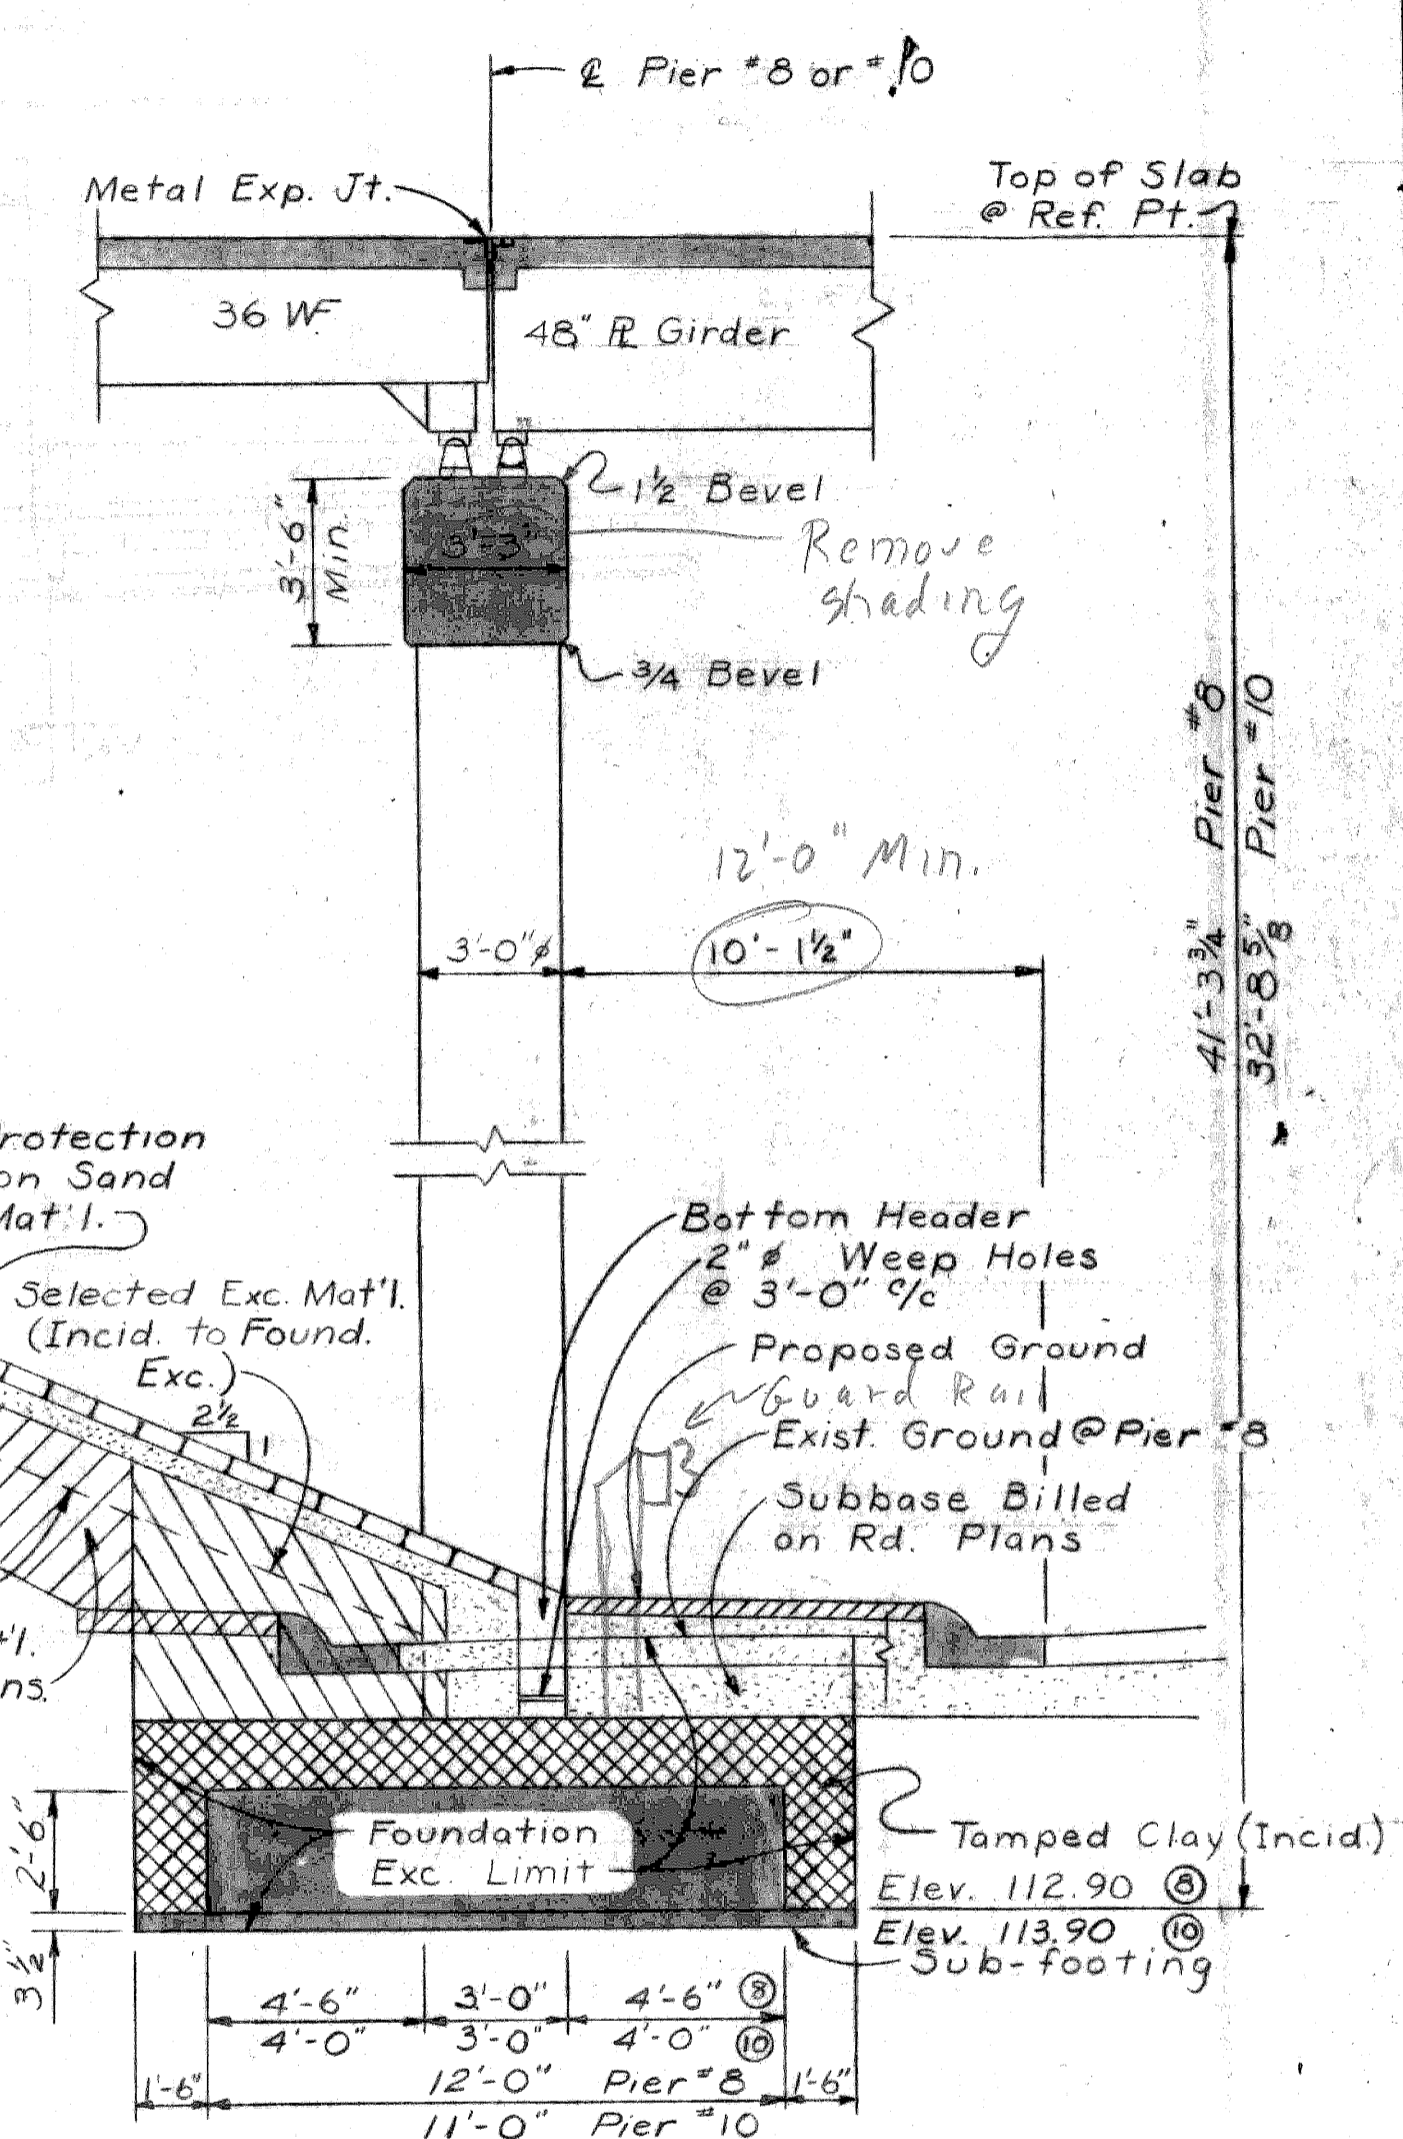 ℄ Pier #8 or #10
Metal Exp. Jt.
Top of Slab
@ Ref. Pt.
36 WF
48" ℞ Girder
1½ Bevel
3'-6"
Min.
3'-3"
Remove
shading
3/4 Bevel
41'-3¾" Pier #8
32'-8⅝" Pier #10
12'-0" Min.
3'-0"ø
10'-1½"
Protection
on Sand
Mat'l.
Bottom Header
2"ø Weep Holes
@ 3'-0" c/c
Selected Exc. Mat'l.
(Incid. to Found.
Exc.)
Proposed Ground
Guard Rail
2½
1
Exist. Ground @ Pier #8
Subbase Billed
on Rd. Plans
t'l.
ns.
2'-6"
3½"
Foundation
Exc. Limit
Tamped Clay (Incid.)
Elev. 112.90 ⑧
Elev. 113.90 ⑩
Sub-footing
4'-6" 3'-0" 4'-6" ⑧
4'-0" 3'-0" 4'-0" ⑩
1'-6" 12'-0" Pier #8 1'-6"
11'-0" Pier #10